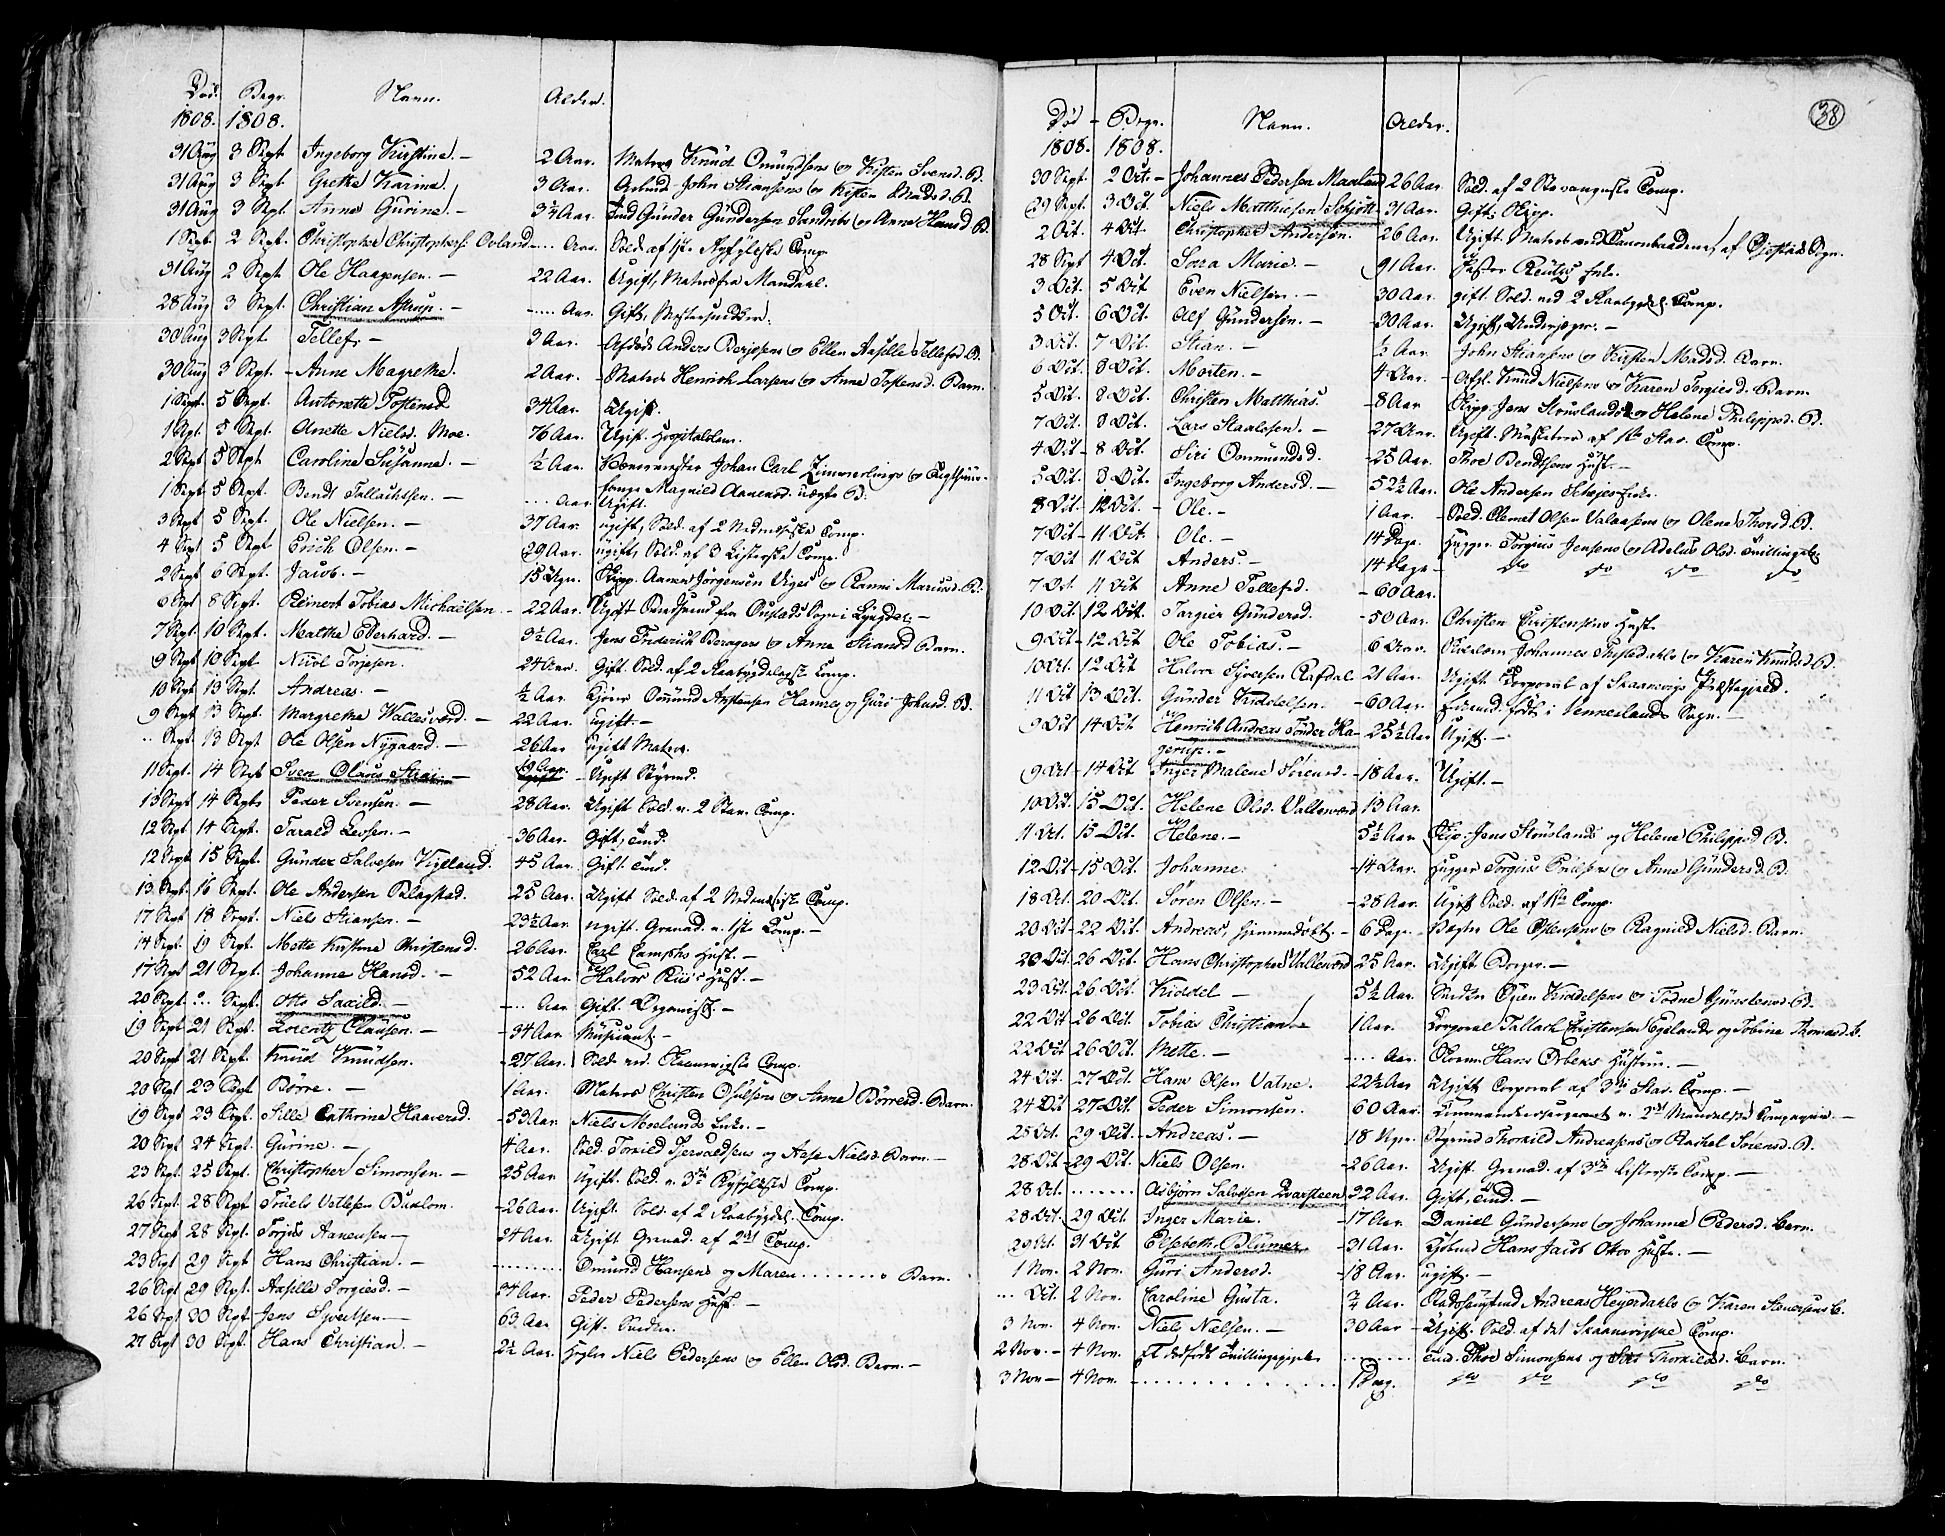 Død. Begr. Navn. Alder.
1808. 1808.
31 Aug 3 Sept Ingeborg Kirstine. - 2 Aar. Matros Knud Omundsens og Kisten Svensd. B.
31 Aug 3 Sept. Grethe Karine. 3 Aar. John Stiansens og Kisten Madsd. B.
31 Aug 3 Sept. Anne Gurine. - 3½ Aar. Ind Gunder Gundersen og Anne Hansd. B.
1 Sept. 2 Sept. Christopher Christophers. Ovland - .... Aar. Sold. af 1ste Ryfylkste Comp.
31 Aug 2 Sept. Ole Haagensen. - 22 Aar. Ugift, Matros fra Mandaal.
28 Aug 3 Sept. Christian Astrup. - ..... Aar. Gift,
30 Aug 3 Sept Tellef. - 3 Aar. Afdøde Anders Berjesens og Ellen Aaselle Tellefsd. B.
30 Aug 3 Sept. - Anne Magrethe. 2 Aar. - Matros Henrich Larsens og Anne Tostensd. Barn.
1 Sept. 5 Sept. Antonette Tostensd 34 Aar. Ugift.
1 Sept. 5 Sept. Anette Nielsd. Moe. 76 Aar. Ugift. Hospitalslem.
2 Sept 5 Sept Caroline Susanne. - ½ Aar. Johan Carl Zimmerlings og
Magnild Aanensd. uægte B.
1 Sept 5 Sept. Bendt Tallachsen. - .... Aar. Ugift.
3 Sept 5 Sept. Ole Nielsen. - 37 Aar. ugift, Sold. af 2 Comp.
4 Sept 5 Sept Erich Olsen. - 29 Aar. ugift, Sold. af 3 Listerske Comp.
2 Sept 6 Sept. Jacob. - 15 Uger. Skipp. Aanon Jørgensen og B.
6 Sept 8 Sept. Reinert Tobias Michaelsen - 22 Aar. Ugift fra Sogn i Lyngdal. -
7 Sept. 10 Sept. Mathea Eberhard. - 3½ Aar. Jens Friderich Beragers og Anne Barn.
9 Sept 10 Sept Niiol Torjesen. 24 Aar. Gift. Sold. af 2 Raabygdelagste Comp.
10 Sept 13 Sept. Andreas. - ½ Aar. Omund Anstensen Hanne og Guri Johnsd. B.
9 Sept 13 Sept. Margrethe Wallesværd. - 22 Aar. ugift. -
.. Sept. 13 Sept Ole Olsen Nygaard. - 26 Aar ugift Matros.
11 Sept. 14 Sept Sven Olaus Strai. - 19 Aar. - Ugift Styrmd.
13 Sept 14 Septs Peder Svensen. - 28 Aar. Ugift Sold. v. 2 Stav. Comp.
12 Sept 14 Sept. Tarald Levsen. - - 36 Aar. Gift, Ind.
12 Sept 15 Sept. Gunder Salvesen Vigeland. 45 Aar. Gift. Ind.
13. Sept. 16 Sept. Ole Andersen Salagstad. 25 Aar. Ugift Sold. af 2 Comp.
17 Sept 18 Sept. Niels Stiansen. - 23½ Aar. ugift. Grenad. v. 1ste Comp. -
14 Sept. 19 Sept. Mette Kirstine Christensd. - 26 Aar. Carl Camphs Hust. -
17 Sept 21 Sept. Johanne Hansd. - 52 Aar. Halvor Riis's Hust. -
20 Sept. ... Sept. Otto Saxild. - .... Aar. Gift. Organist. -
19 Sept 21 Sept. Lorentz Clausen. - - 34 Aar. Musicant -
20 Sept 21 Sept. Knud Knudsen. - 27 Aar. Sold. ved Comp.
20 Sept 23 Sept Børre. - 1 Aar. Matros Christen Osulsens og Anne Børresd. Barn.
19 Sept 23 Sept. Sille Cathrine Haaversd. - 53 Aar. Niels Moelunds Enke. -
20 Sept 24 Sept. Gurine. - 4 Aar. Sold. Torkild Tjersvaldsens og Aase Nielsd. Barn. -
23 Sept. 25 Sept. Christopher Simonsen. - 25 Aar. Ugift. Sold. v. 3die Ryfylkste Comp.
26 Sept. 28 Sept Truels Vetlesen Buxlom. - 26 Aar. Ugift. Sold. af 2 Raabygdel. Comp.
27 Sept 28 Sept. Torjus Aanensen - 24 Aar. Ugift Grenad. af 2det Comp.
23 Sept 29 Sept Hans Christian. - ......... Omund Hansens og Maren ........ Barn.
26 Sept 29 Sept. Aaselle Torgiesd. - 34 Aar. Peder Pedersens Hust. -
26 Sept 30 Sept Jens Syvertsen. - 63. Aar Gift. Snedker.
27 Sept 30 Sept. Hans Christian. - 2½ Aar. Niels Pedersens og Ellen Olsd. Barn. -
38
Død - Begr. Navn. Alder.
1808. 1808.
30 Sept. 2 Oct. - Johannes Pedersen Maaland 26 Aar. Sold. af 2 Stavangerste Comp.
29 Sept. 3 Oct. Niels Matthiesen Schjøtt - 31 Aar. Gift. Skipp.
2 Oct. 4 Oct. Christopher Andersen. 26 Aar. Ugift. Matros ved Canonbaadene, af Sogn.
28 Sept 4 Oct. Sara Marie. - 91 Aar. Pastor Reutes Enke.
3 Oct. 5 Oct Even Nielsen. - 30 Aar. gift. Sold. ved 2 Raabygdel. Comp.
5 Oct. 6 Oct. Alf Gundersen. - - 30 Aar. Ugift, Underjæger. -
3 Oct. 7 Oct. Stian. - ½ Aar. John Stiansens og Kirsten Madsd. Barn.
6 Oct. 8 Oct. Morten. - 4 Aar. - Afgl. Knud Nielsens og Karen Torgiesd. Barn.
5 Oct. 8 Oct. Christen Matthias. - 8 Aar Skipp. Jens Stouslands og Helene Philippsd. B.
7 Oct. 8 Oct. Lars Staalesen. - - 27 Aar. Ugift. Musketeer af 1ste Stav. Comp.
4 Oct - 8 Oct. Siri Ommundsd. - 25 Aar. Thor Bendtsens Hust. -
5 Oct. 8 Oct. Ingeborg Andersd. - 52½ Aar. Ole Andersen Enke.
8 Oct. - 12 Oct. - Ole. - 1 Aar. Sold. Clemet Olsen Valaasens og Olena Thorsd. B.
7 Oct - 11 Oct. Ole. - 14 Dage. Hugger Torgius Jensens og Adelus Olsd. Tvillinger.
7 Oct 11 Oct Anders. - 14 Dage - do do do do
7 Oct. 11 Oct Anne Tellefsd. - 60 Aar.
10 Oct. 12 Oct. Targier Gundersd. - 50 Aar. Christen Christensens Hust.
9 Oct. - 12 Oct Ole Tobias. - 6 Aar. Johannes og Karen Knudsd. B.
10 Oct. 12 Oct Halvor Syversen Rafdal. 21 Aar. Ugift Corporal af Skaanevigs Præstegield.
11 Oct 13 Oct. Gunder Kiddelsen. - 60 Aar. født i Vennesland Sogn. -
9 Oct 14 Oct Henrich Andreas Tønder Ha- - 25½ Aar Ugift -
gerup. -
9 Oct - 14 Oct. Inger Malene Sørensd. - 18 Aar. Ugift. -
10 Oct. 15 Oct. Helene Olsd. Vallesværd 13 Aar.
11 Oct. 15 Oct. Helene. - 5½ Aar Skip. Jens Stouslands og Helene Philippsd. B.
12 Oct - 15 Oct. Johanne - 14 Aar. Hugger Torgius og Anne Gundersd. B.
18 Oct. 20 Oct. Søren Olsen. - - 28 Aar. Ugift Sold. af 1ste Comp.
20 Oct - 22 Oct. Andreas, hiemmedøbt. - - 6 Dage. Vægter Ole og Ragnild Nielsd. Barn.
20 Oct 26 Oct. Hans Christopher Vallesværd 25 Aar. Ugift Borger. -
23 Oct. 26 Oct. Kiddel - 5½ Aar. Snedker Kiddelsens og Todne Gunstensd. B.
22 Oct 26 Oct. Tobias Christian - 1 Aar. Corporal Tallach Christensen Egelands og Tobine Thomasd. B.
22 Oct 26 Oct. Mette. - .... Aar. Hans Orbeks Hustru. -
24 Oct. 27 Oct. Hans Olsen Vatne. 22½ Aar Ugift Corporal af 3die Stav. Comp. -
24 Oct 27 Oct. Peder Simonsen. 60 Aar. Commandersergeant v. 2det Mandalske Compagnie. -
25 Oct. 29 Oct. Andreas. - - 18 Uger. Thorkild Andreasens og Rachel Sørensd. B.
28 Oct - 29 Oct. Niels Olsen. - 26 Aar. Ugift. Grenad. af 3die Listerske Comp. -
28 Oct. ........ Asbjørn Salvesen Qvarsteen 32 Aar. Gift, Ind. -
28 Oct. 29 Oct. Inger Marie. - 17 Aar. Daniel Gundersens og Johanne Pedersd. Barn.
29 Oct. 31 Oct Elsebeth Blumer. - 31 Aar. Kjøbmd Hans Jacob Hust. -
1 Nov. 2 Nov. Guri Andersd. - 18 Aar. ugift. -
... Oct. 2 Nov. Caroline Gusta. ¾ Aar. Andreas Heyerdahls og Karen Siversens B.
3 Nov 4 Nov. Niels Nielsen. - 30 Aar - Ugift. Sold. af det Skaanevigske Comp.
2 Nov. - 4 Nov. Et dødfødt Tvillingepigebr. ........ Ind. Thor Simonsens og Siri Thorkildsd. Barn.
3 Nov - 4 Nov. - . . . . . . . . . . . 1 Dag. do do do do